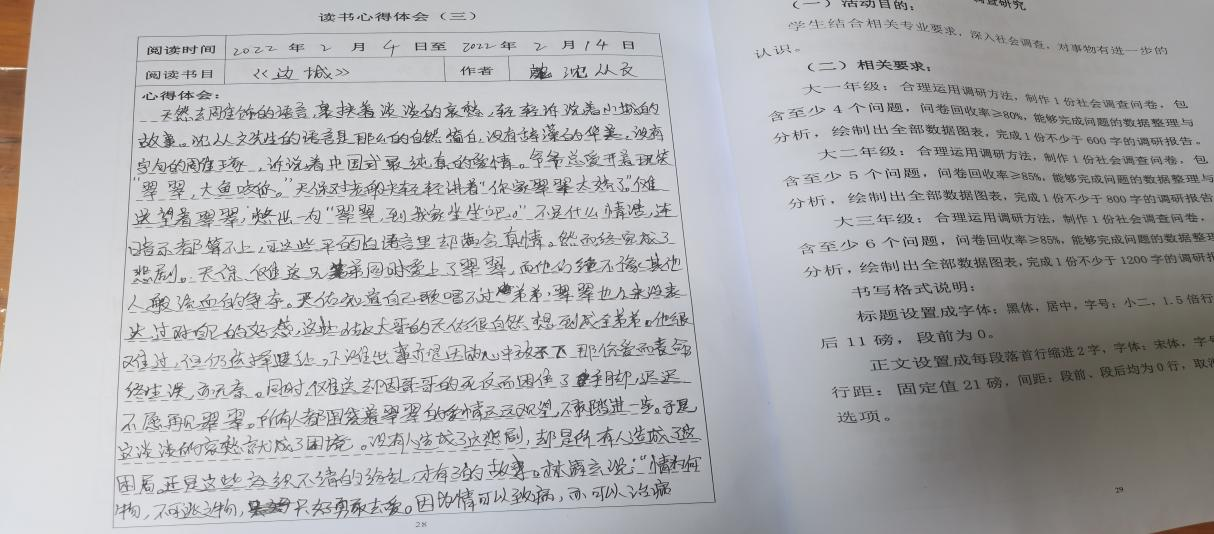 读书心得体会（三）
阅读时间 2022 年 2 月 4 日至 2022 年 2 月 14 日
阅读书目 《边城》 作者 沈从文
心得体会：
天然去周庄饰的语言，裹挟着淡淡的哀愁，轻轻诉说着小城的
故事。沈从文先生的语言是那么的自然、直白，没有词藻的华美，没有
字句的周庄琢，诉说着中国式最纯真的爱情。爷爷总爱开着玩笑
“翠翠，大鱼咬你。”天保对老船夫轻轻讲着“你家翠翠太娇了。”傩
送望着翠翠，“翠翠，到我家坐坐吧。”不是什么情话，连
暗示都算不上，可这些平白语言里却蕴含真情。然而终究成了
悲剧。天保、傩送兄弟同时爱上了翠翠，而他们绝不像其他
人般流血的争夺。天保知道自己歌唱不过弟弟，翠翠也从来没表
达过对自己的好感，这些大哥的天保很自然想到成全弟弟。他很
难过，但仍选择，那份爱而丧命
终生误。同时，傩送却因哥哥的死反而困住了手脚，迟迟
不愿再见翠翠。所有人都围绕着翠翠的爱情观望，不敢踏进一步。于是
这淡淡的哀愁就成了困境。没有人造成了这悲剧，却是所有人造成了这
困局。正是这些不绪的纷乱，才有了的故事。林语堂说：“情为何
物，不可逃之物，只好勇敢去爱。因为情可以致病，亦可以治病
28
调查研究
（一）活动目的：
学生结合相关专业要求，深入社会调查，对事物有进一步的
认识。
（二）相关要求：
大一年级：合理运用调研方法，制作 1 份社会调查问卷，包
含至少 4 个问题，问卷回收率≥80%，能够完成问题的数据整理与
分析，绘制出全部数据图表，完成 1 份不少于 600 字的调研报告。
大二年级：合理运用调研方法，制作 1 份社会调查问卷，包
含至少 5 个问题，问卷回收率≥85%，能够完成问题的数据整理与
分析，绘制出全部数据图表，完成 1 份不少于 800 字的调研报告
大三年级：合理运用调研方法，制作 1 份社会调查问卷，
含至少 6 个问题，问卷回收率≥85%，能够完成问题的数据整理
分析，绘制出全部数据图表，完成 1 份不少于 1200 字的调研报
书写格式说明：
标题设置成字体：黑体，居中，字号：小二，1.5 倍行
后 11 磅，段前为 0。
正文设置成每段落首行缩进 2 字，字体：宋体，字号
行距：固定值 21 磅，间距：段前、段后均为 0 行，取消
选项。
29